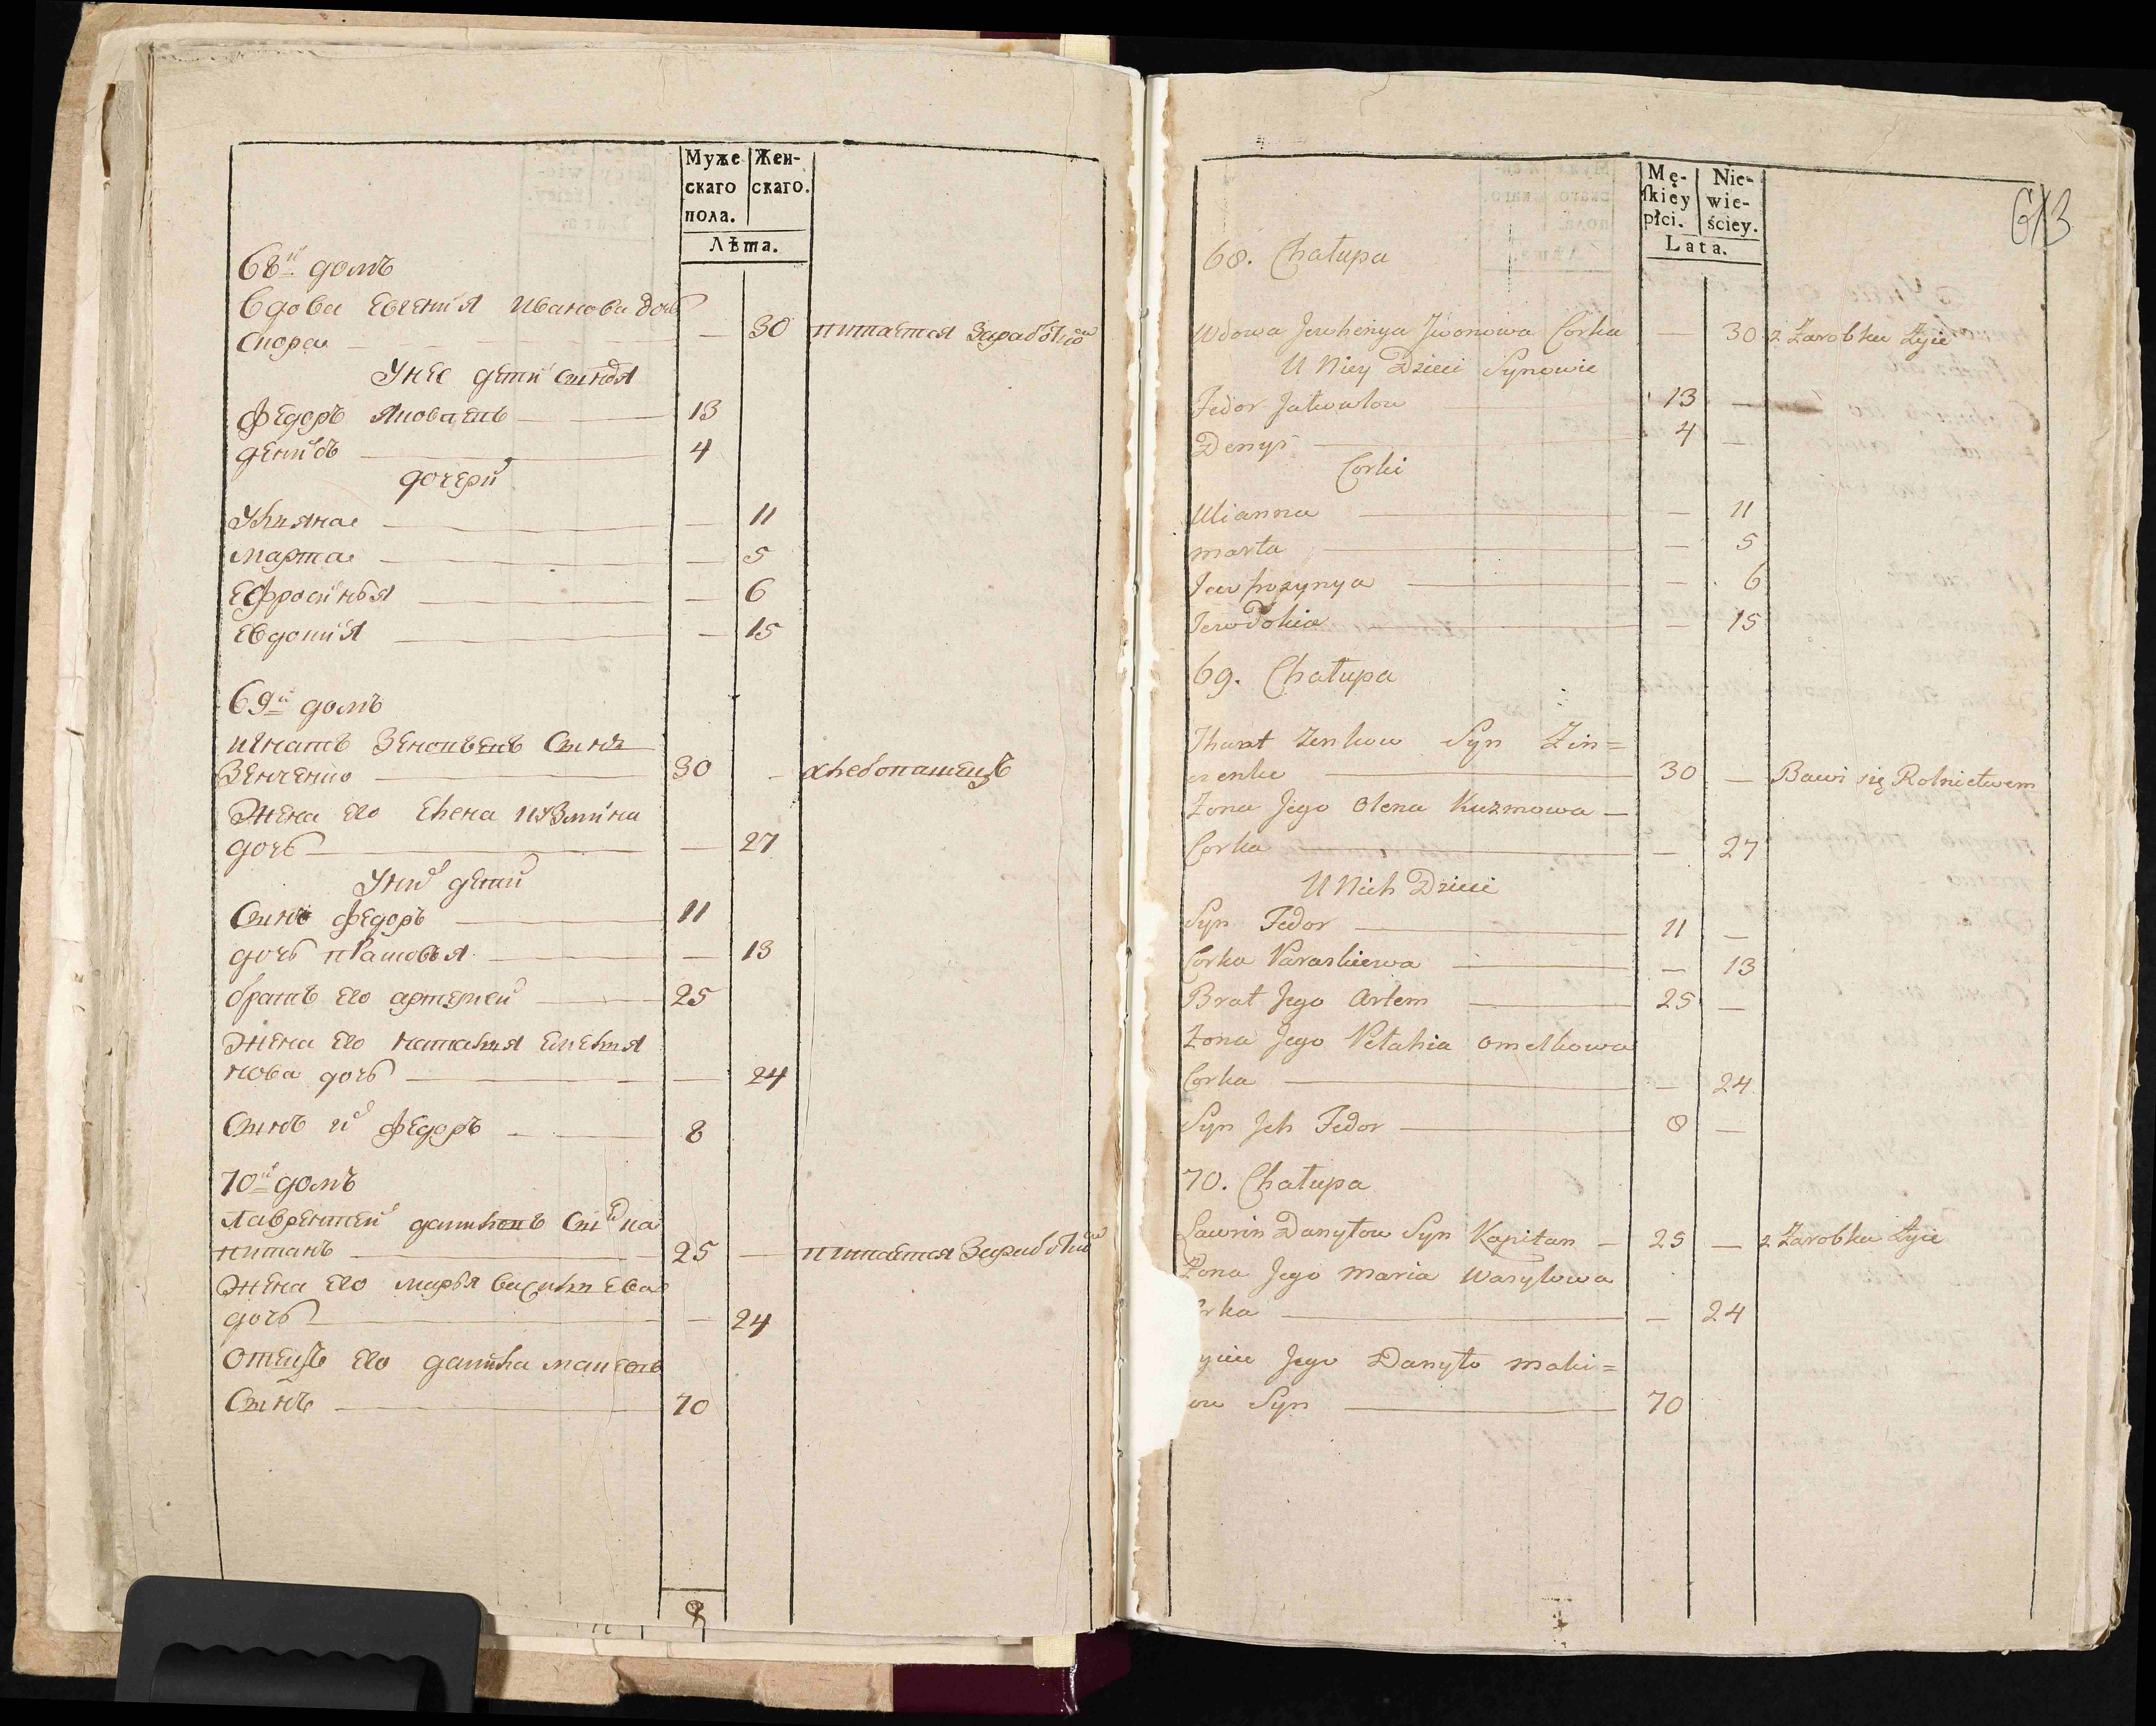 Муже
скаго
пола.
Жен-
скаго.
Лѣта.
68й домъ
Вдова Евгения Иванова дочь
30 питается
У нее дети
Федоръ Яковлевъ 13
Денисъ 4
дочери
Ульяна 11
Марта 5
Ефросинья 6
Евдокия 15
69й домъ
Игнатъ Зеновьевъ Сынъ
Зенченко 30 хлебопашецъ
Жена его Елена Кузмина
дочь 27
У них дети
Сынъ Федоръ 11
дочь 13
братъ его Артемей 25
Жена его Наталия Емелия
нова дочь 24
Сынъ их Федоръ 8
70й домъ
Лаврентей Сынъ Ка
питанъ 25 питается
Жена его Марья Василиева
дочь 24
Отецъ его данила
Сынъ 70
Mę-
ſkiey
płci.
Nie-
wie-
ściey.
Lata.
613
68. Chałupa
Wdowa Jewhenya Jwanowa Corka 30 z Zarobku Zyie
U Niey Dzieci Synowie
Fedor Jakowlow 13
Denys 4
Corki
Ulianna 11
Marta 5
Jewfrozynya 6
Jewdokia 15
69. Chałupa
Ihnat Zenkow Syn Zin=
czenko 30 Bawi się Rolnictwem
Zona Jego Olena Kuzmowa
Corka 27
U Nich Dzieci
Syn Fedor 11
Corka Paraskiewa 13
Brat Jego Artem 25
Zona Jego Pelahia Omelkowa
Corka 24
Syn Jch Fedor 8
70. Chałupa
Lawrin Danyłow Syn Kapitan 25 z Zarobku Zyie
Zona Jego Maria Wasylowa
orka 24
yciec Jego Danyło Maki=
ow Syn 70